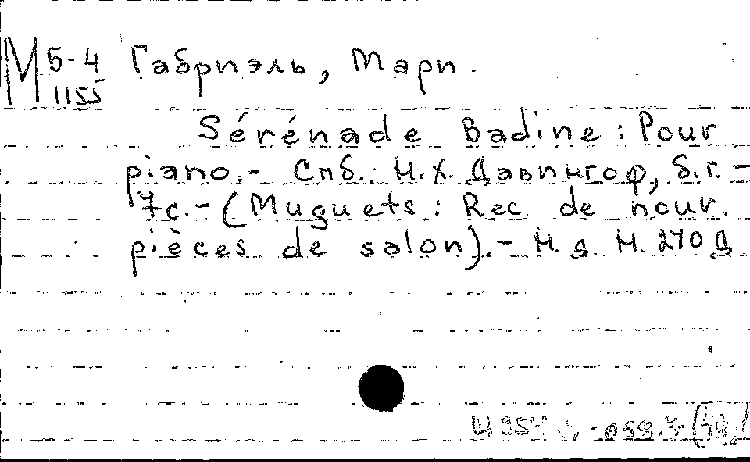 М 5-4 Габриэль, Мари.
1155
Sérénade Badine: Pour
piano.- Спб.: Н.Х. Давингоф, б.г. -
7с.- (Muguets: Rec de nouv.
pièces de salon).- Н.д. Н. 270 Д